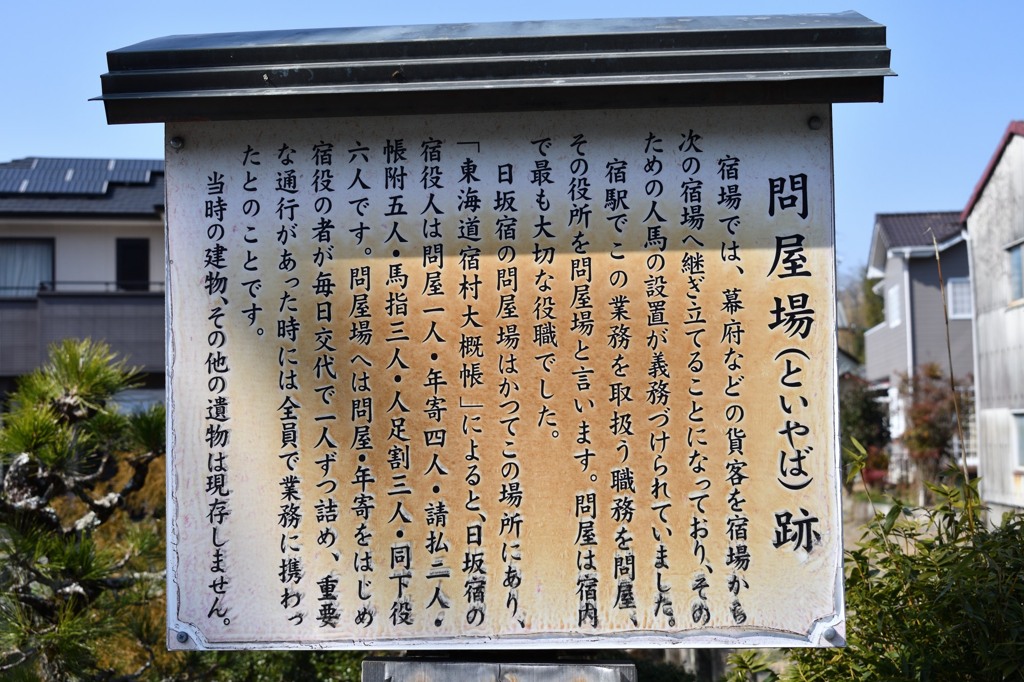 問屋場(といやば)跡
宿場では、幕府などの貨客を宿場から
次の宿場へ継ぎ立てることになっており、その
ための人馬の設置が義務づけられていました。
宿駅でこの業務を取扱う職務を問屋、
その役所を問屋場と言います。問屋は宿内
で最も大切な役職でした。
日坂宿の問屋場はかつてこの場所にあり、
「東海道宿村大概帳」によると、日坂宿の
宿役人は問屋一人・年寄四人・請払三人・
帳附五人・馬指三人・人足割三人・同下役
六人です。問屋場へは問屋・年寄をはじめ
宿役の者が毎日交代で一人ずつ詰め、重要
な通行があった時には全員で業務に携わっ
たとのことです。
当時の建物、その他の遺物は現存しません。